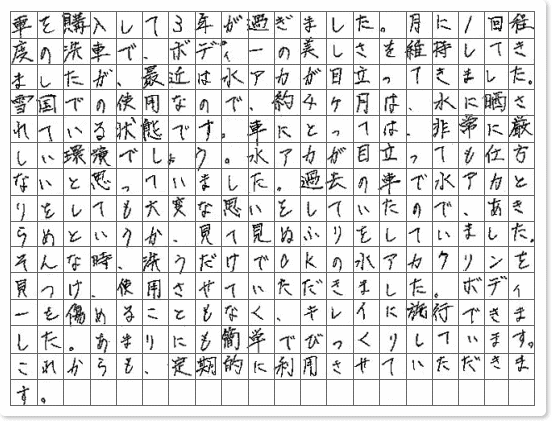 車を購入して3年が過ぎました。月に1回程
度の洗車で、ボディーの美しさを維持してき
ましたが、最近は水アカが目立ってきました。
雪国での使用なので、約4ヶ月は、水に晒さ
れている状態です。車にとっては、非常に厳
しい環境でしょう。水アカが目立っても仕方
ないと思っていました。過去の車で水アカと
りをしても大変な思いをしていたので、あき
らめというか、見て見ぬふりをしていました。
そんな時、洗うだけでOKの水アカクリンを
見つけ、使用させていただきました。ボディ
ーも傷めることもなく、キレイに施行できま
した。あまりにも簡単でびっくりしています。
これからも、定期的に利用させていただきま
す。